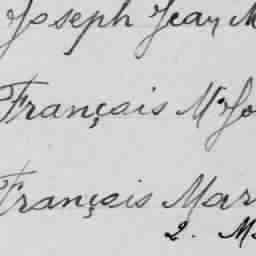 Joseph Jean M
François M
François Mar
2. M